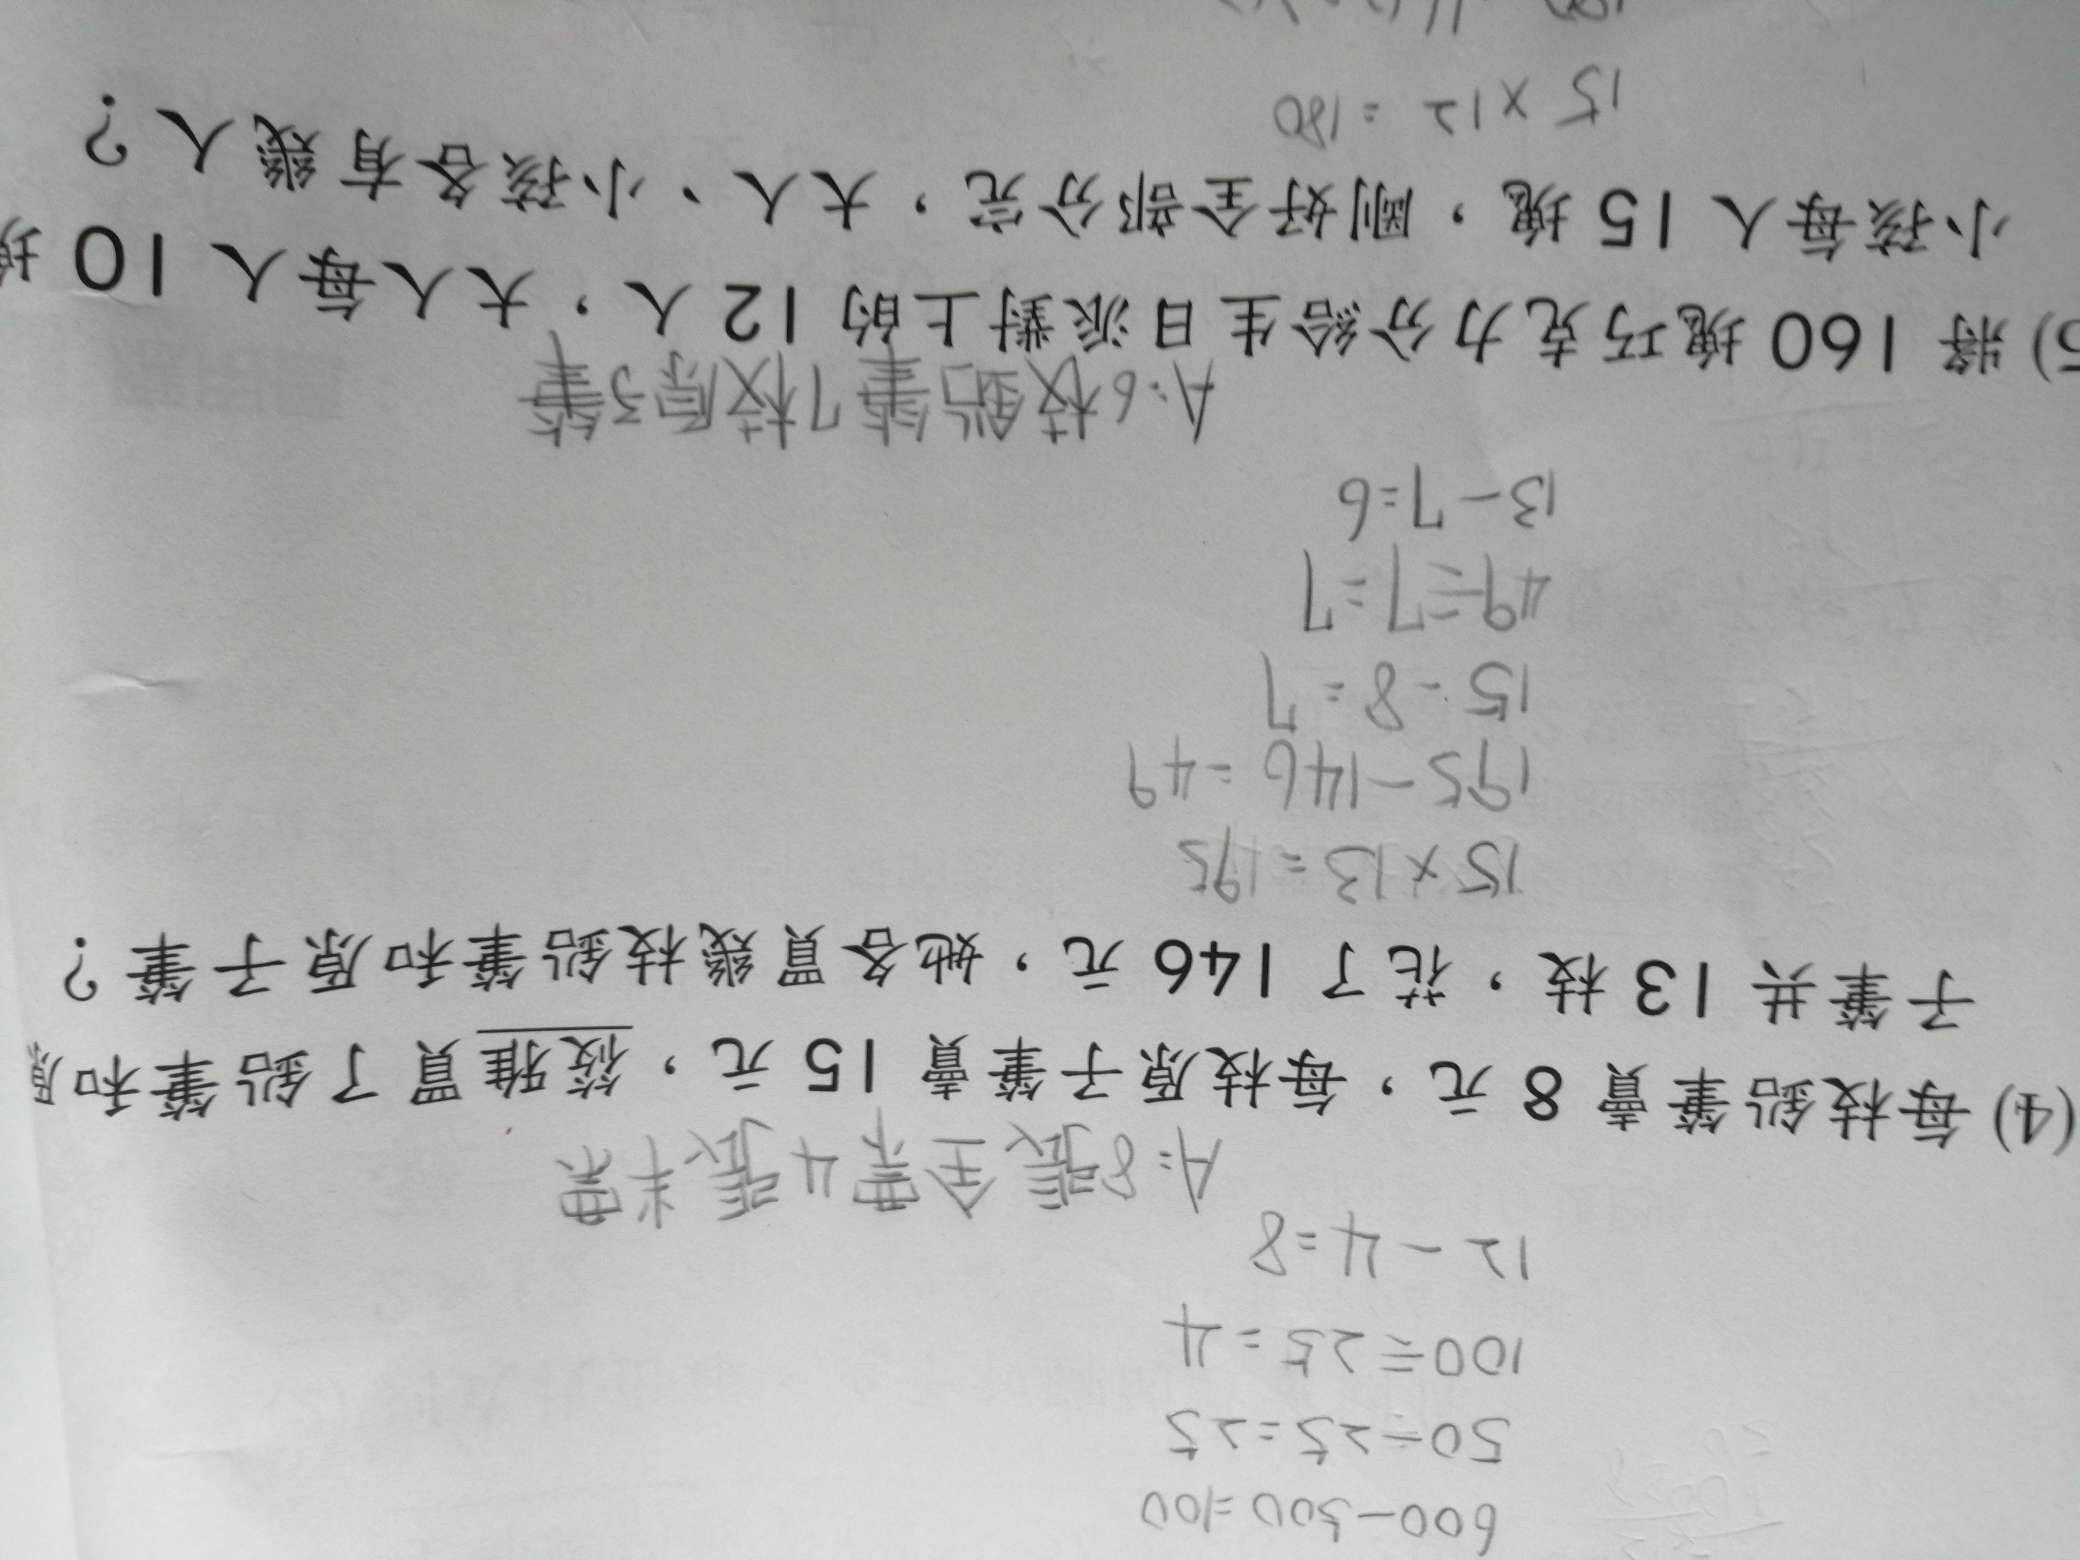 600-500=100
50-25=25
100÷25=4
12-4=8
A:8張全票4張半票
(4) 每枝鉛筆賣 8 元，每枝原子筆賣 15 元，筱雅買了鉛筆和原
子筆共 13 枝，花了 146 元，她各買幾枝鉛筆和原子筆？
15×13=195
195-146=49
15-8=7
49÷7=7
13-7=6
A:6枝鉛筆7枝原子筆
5) 將 160 塊巧克力分給生日派對上的 12 人，大人每人 10 塊
小孩每人 15 塊，剛好全部分完，大人、小孩各有幾人？
15×12=180